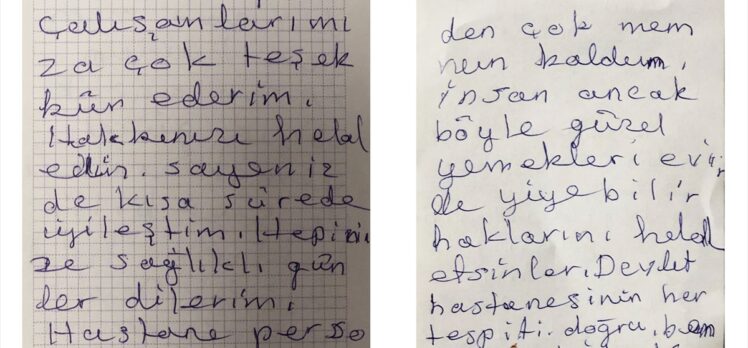 çalışanlarımı
za çok teşek
kür ederim.
Hakkınızı helal
edin. sayeniz
de kısa sürede
iyileştim. Hepini
ze sağlıklı gün
ler dilerim.
Hastane perso
den çok mem
nun kaldım.
İnsan ancak
böyle güzel
yemekleri evin
de yiyebilir
haklarını helal
etsinler. Devlet
hastanesinin her
tespiti doğru, ben